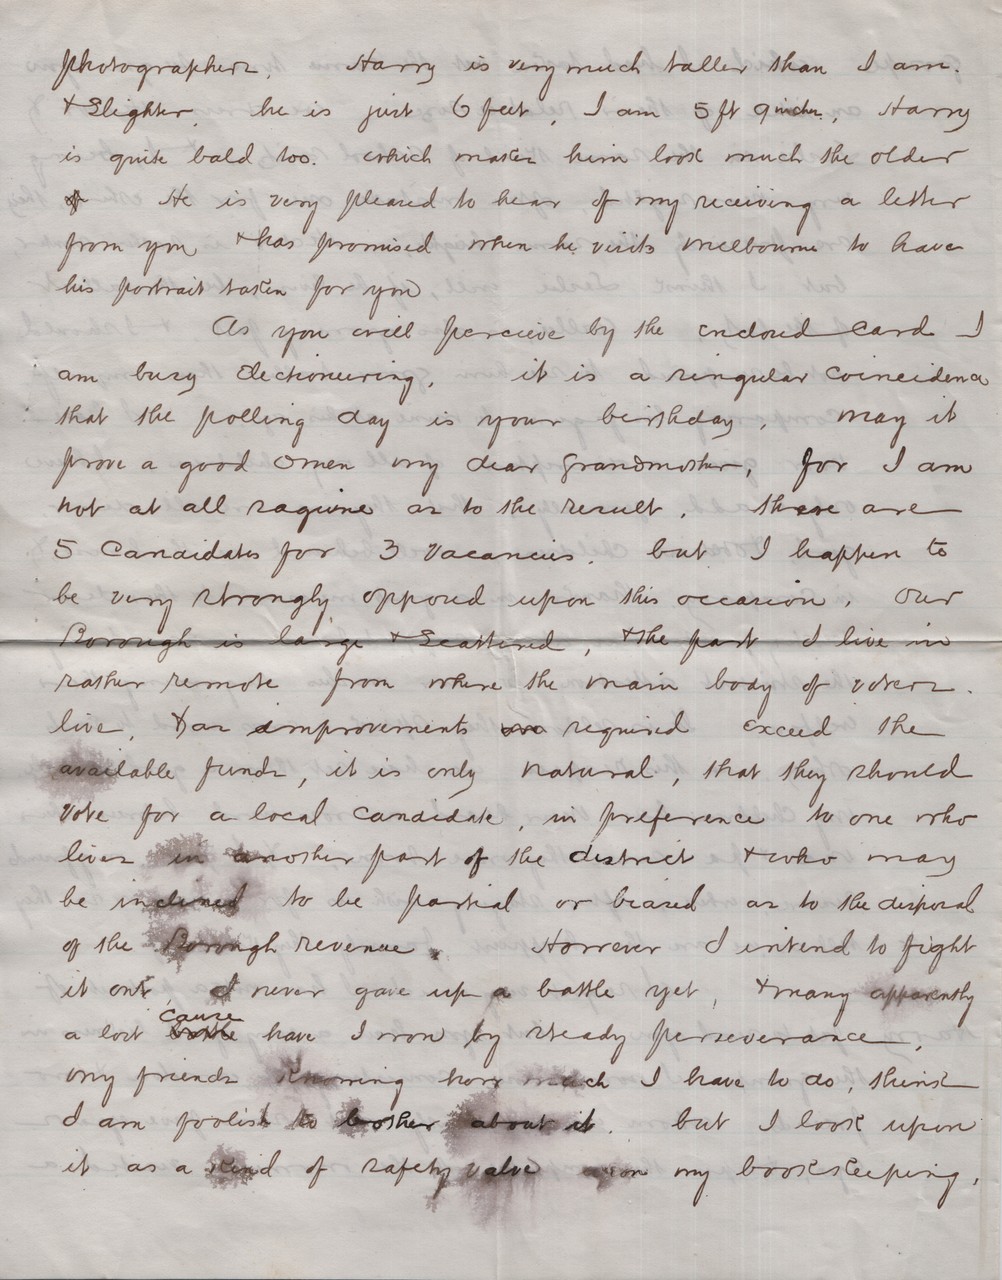 photographers. Harry is very much taller than I am.
& Slighter. he is just 6 feet, I am 5 ft 9 inches, Harry
is quite bald too. which makes him look much the older
He is very pleased to hear, of my receiving a letter
from you & has promised when he visits Melbourne to have
his portrait taken for you
As you will percieve by the enclosed Card I
am busy Electioneering, it is a singular Coincidence
that the polling day is your birthday, may it
prove a good Omen my dear Grandmother, for I am
not at all saguine as to the result, there are
5 Candidates for 3 Vacancies, but I happen to
be very strongly opposed upon this occasion. Our
Borough is large & Scattered, & the part I live in
rather remote from where the main body of voters.
live, & as improvements required exceed the
available funds, it is only natural, that they should
vote for a local Candidate, in preference to one who
lives in another part of the district & who may
be inclined to be partial or biased as to the disposal
of the Borough revenue. However I intend to fight
it out, I never gave up a battle yet, & many apparently
a lost cause have I won by steady perseverance,
my friends Knowing how much I have to do, think
I am foolish to bother about it. but I look upon
it as a Kind of safety valve upon my bookkeeping,